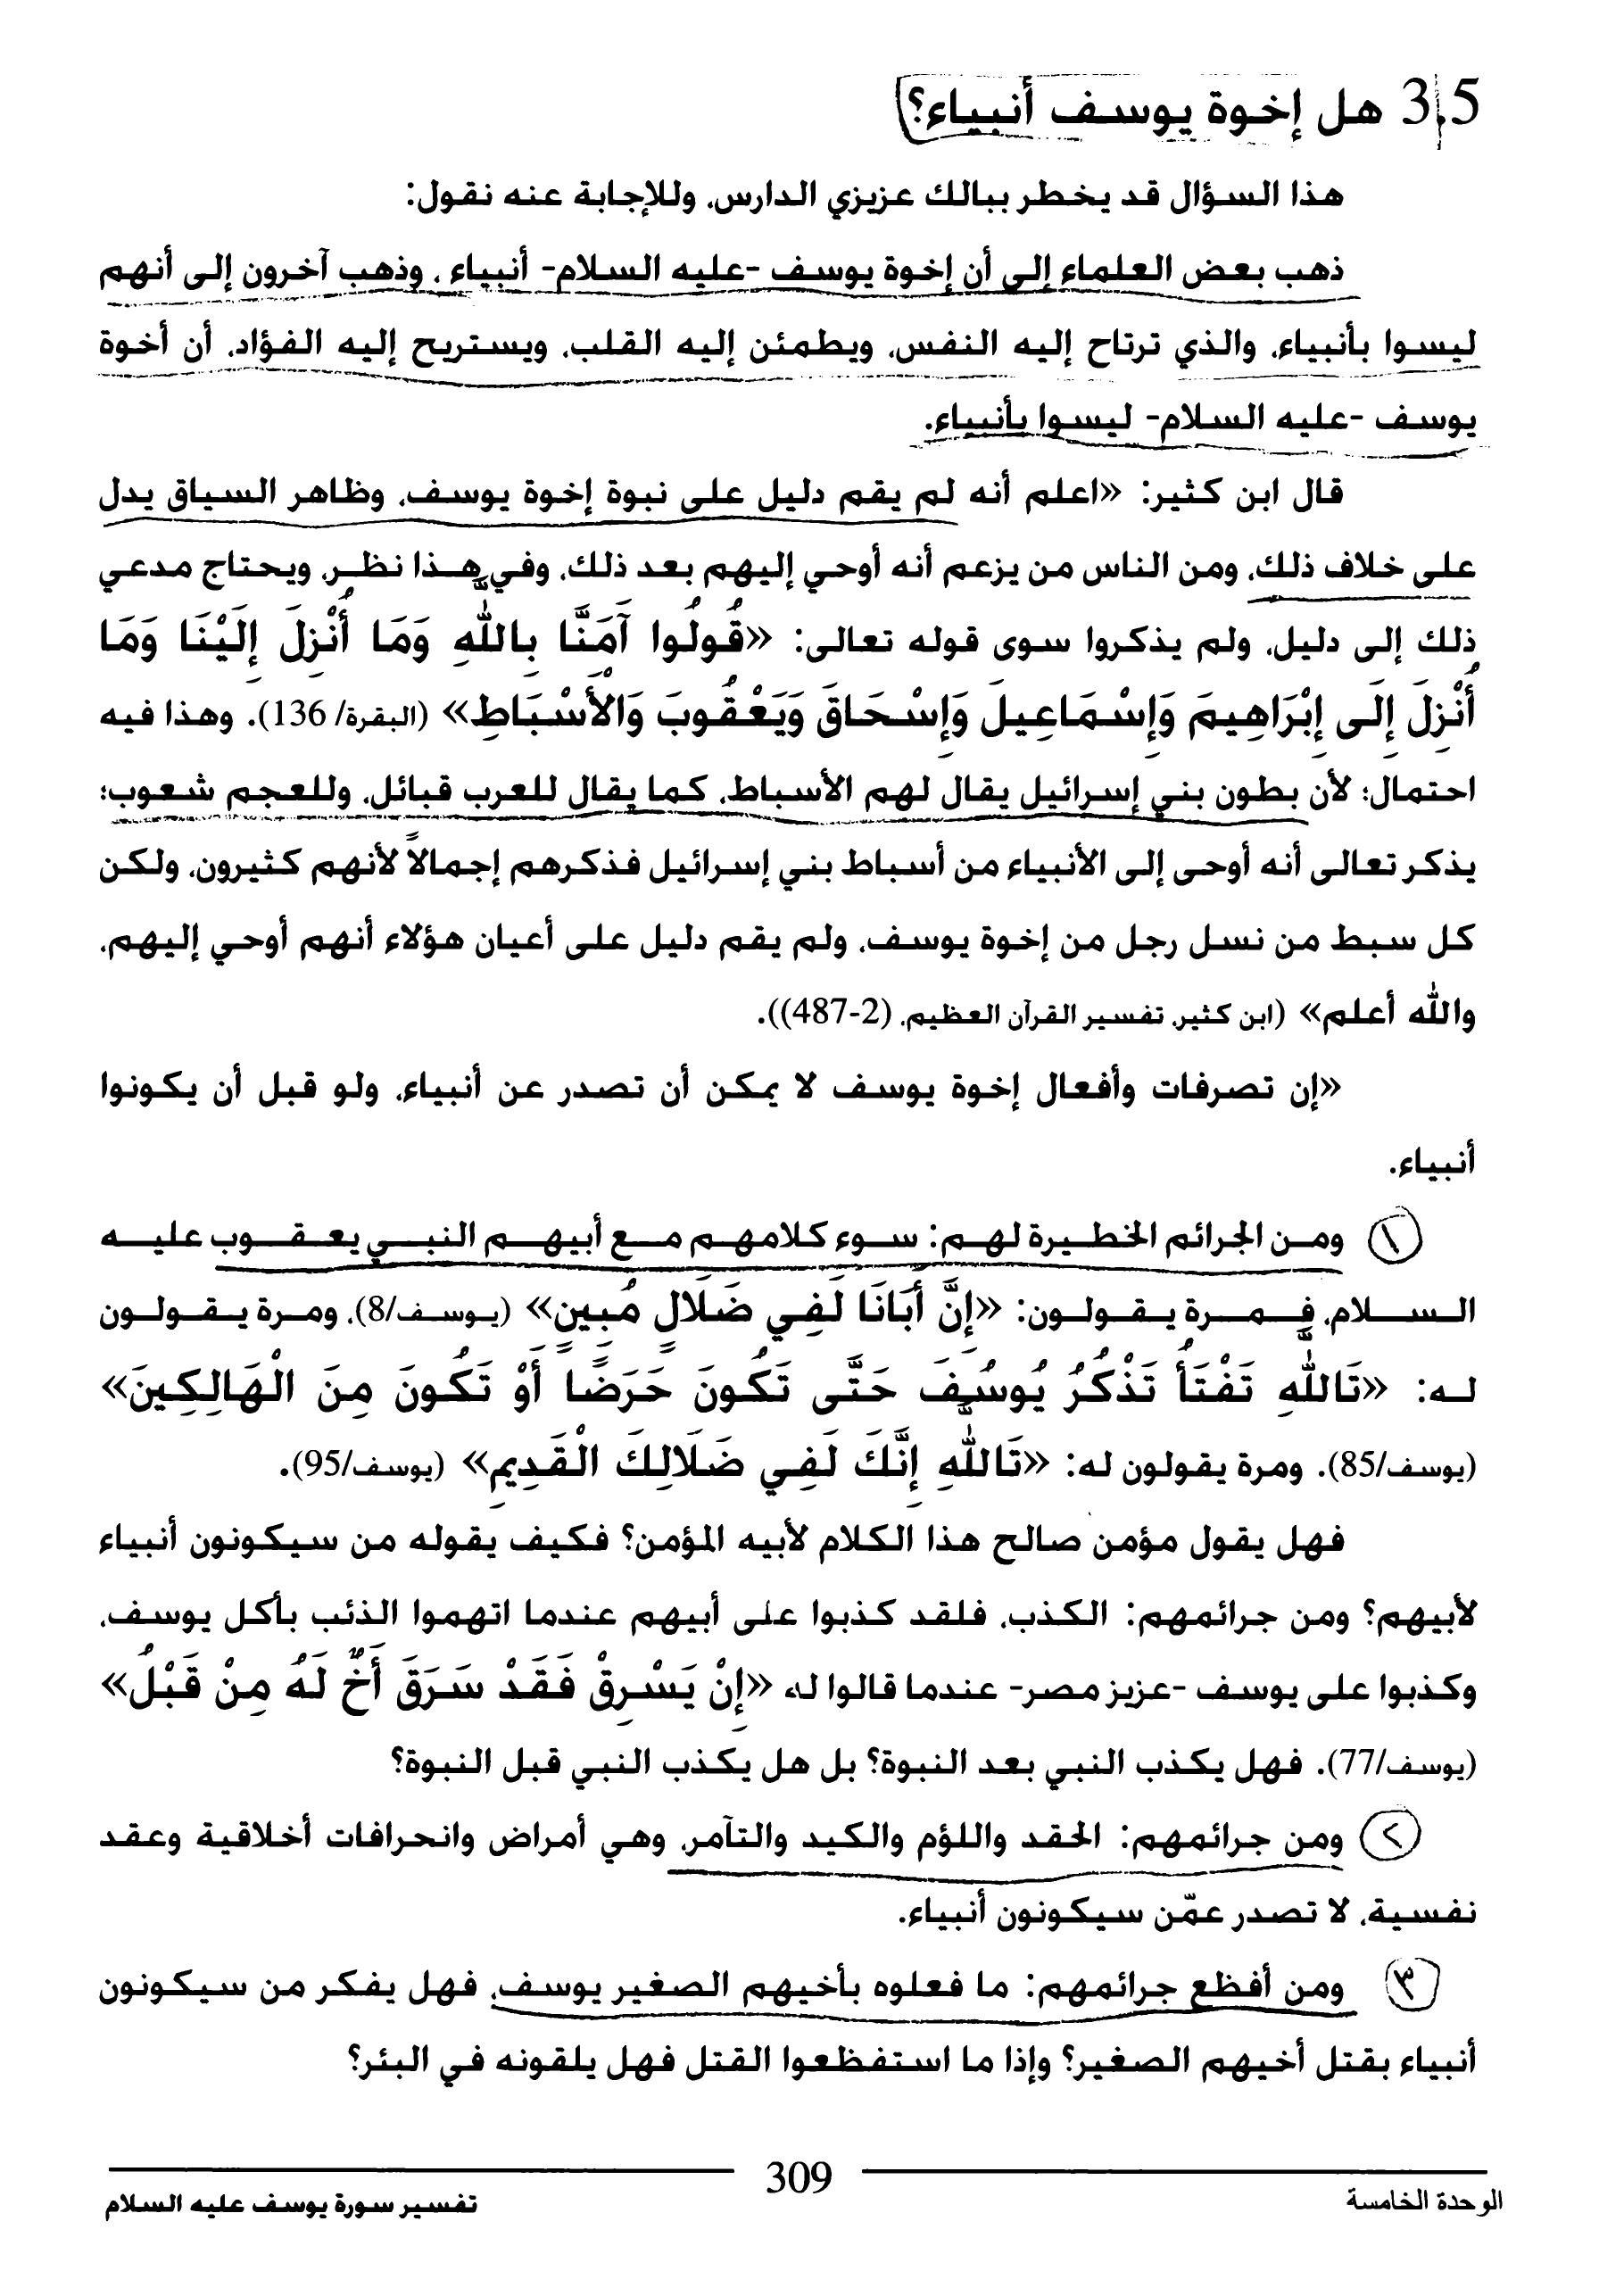 3.5 هل إخوة يوسف أنبياء؟
هذا السؤال قد يخطر ببالك عزيزي الدارس، وللإجابة عنه نقول:
ذهب بعض العلماء إلى أن إخوة يوسف -عليه السلام- أنبياء ، وذهب آخرون إلى أنهم
ليسوا بأنبياء، والذي ترتاح إليه النفس، ويطمئن إليه القلب، ويستريح إليه الفؤاد، أن أخوة
يوسف -عليه السلام- ليسوا بأنبياء.
قال ابن كثير: «اعلم أنه لم يقم دليل على نبوة إخوة يوسف، وظاهر السياق يدل
على خلاف ذلك، ومن الناس من يزعم أنه أوحي إليهم بعد ذلك، وفي هذا نظر، ويحتاج مدعي
ذلك إلى دليل، ولم يذكروا سوى قوله تعالى: «قُولُوا آمَنَّا بِاللَّهِ وَمَا أُنْزِلَ إِلَيْنَا وَمَا
أُنْزِلَ إِلَى إِبْرَاهِيمَ وَإِسْمَاعِيلَ وَإِسْحَاقَ وَيَعْقُوبَ وَالأَسْبَاطِ» (البقرة/ 136). وهذا فيه
احتمال؛ لأن بطون بني إسرائيل يقال لهم الأسباط، كما يقال للعرب قبائل، وللعجم شعوب؛
يذكر تعالى أنه أوحى إلى الأنبياء من أسباط بني إسرائيل فذكرهم إجمالاً لأنهم كثيرون، ولكن
كل سبط من نسل رجل من إخوة يوسف، ولم يقم دليل على أعيان هؤلاء أنهم أوحي إليهم،
والله أعلم» (ابن كثير، تفسير القرآن العظيم، (2-487)).
«إن تصرفات وأفعال إخوة يوسف لا يمكن أن تصدر عن أنبياء، ولو قبل أن يكونوا
أنبياء.
١ ومن الجرائم الخطيرة لهم: سوء كلامهم مع أبيهم النبي يعقوب عليه
السلام، فمرة يقولون: «إِنَّ أَبَانَا لَفِي ضَلَالٍ مُبِينٍ» (يوسف/8)، ومرة يقولون
له: «تَاللَّهِ تَفْتَأُ تَذْكُرُ يُوسُفَ حَتَّى تَكُونَ حَرَضًا أَوْ تَكُونَ مِنَ الْهَالِكِينَ»
(يوسف/85). ومرة يقولون له: «تَاللَّهِ إِنَّكَ لَفِي ضَلَالِكَ الْقَدِيمِ» (يوسف/95).
فهل يقول مؤمن صالح هذا الكلام لأبيه المؤمن؟ فكيف يقوله من سيكونون أنبياء
لأبيهم؟ ومن جرائمهم: الكذب، فلقد كذبوا على أبيهم عندما اتهموا الذئب بأكل يوسف،
وكذبوا على يوسف -عزيز مصر- عندما قالوا له «إِنْ يَسْرِقْ فَقَدْ سَرَقَ أَخٌ لَهُ مِنْ قَبْلُ»
(يوسف/77). فهل يكذب النبي بعد النبوة؟ بل هل يكذب النبي قبل النبوة؟
٢ ومن جرائمهم: الحقد واللؤم والكيد والتآمر، وهي أمراض وانحرافات أخلاقية وعقد
نفسية، لا تصدر عمّن سيكونون أنبياء.
٣ ومن أفظع جرائمهم: ما فعلوه بأخيهم الصغير يوسف، فهل يفكر من سيكونون
أنبياء بقتل أخيهم الصغير؟ وإذا ما استفظعوا القتل فهل يلقونه في البئر؟
309
الوحدة الخامسة
تفسير سورة يوسف عليه السلام